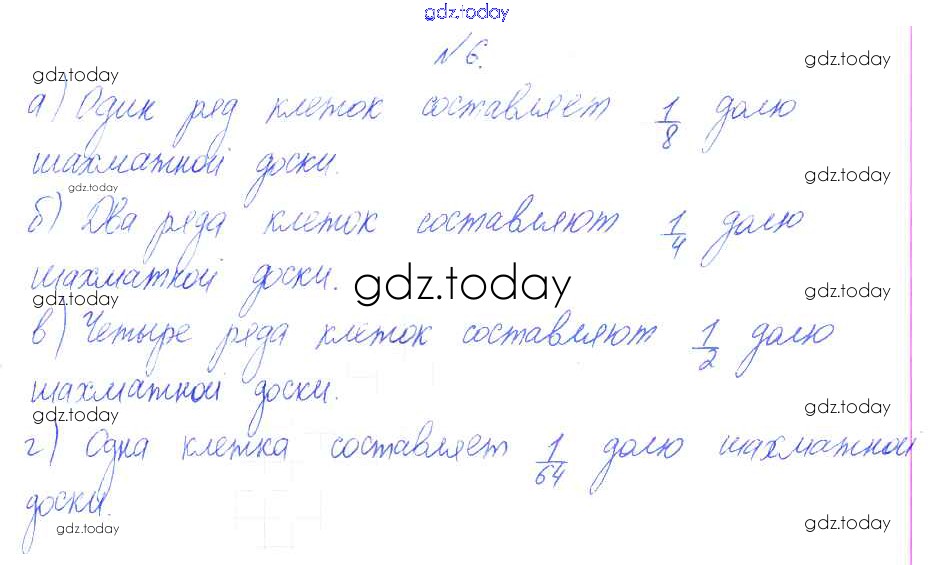 gdz.today
№ 6.
gdz.today
gdz.today
а) Один ряд клеток составляет 1/8 долю
шахматной доски.
gdz.today
gdz.today
б) Два ряда клеток составляют 1/4 долю
шахматной доски.
gdz.today
gdz.today
gdz.today
в) Четыре ряда клеток составляют 1/2 долю
шахматной доски.
gdz.today
gdz.today
г) Одна клетка составляет 1/64 долю шахматной
доски.
gdz.today
gdz.today